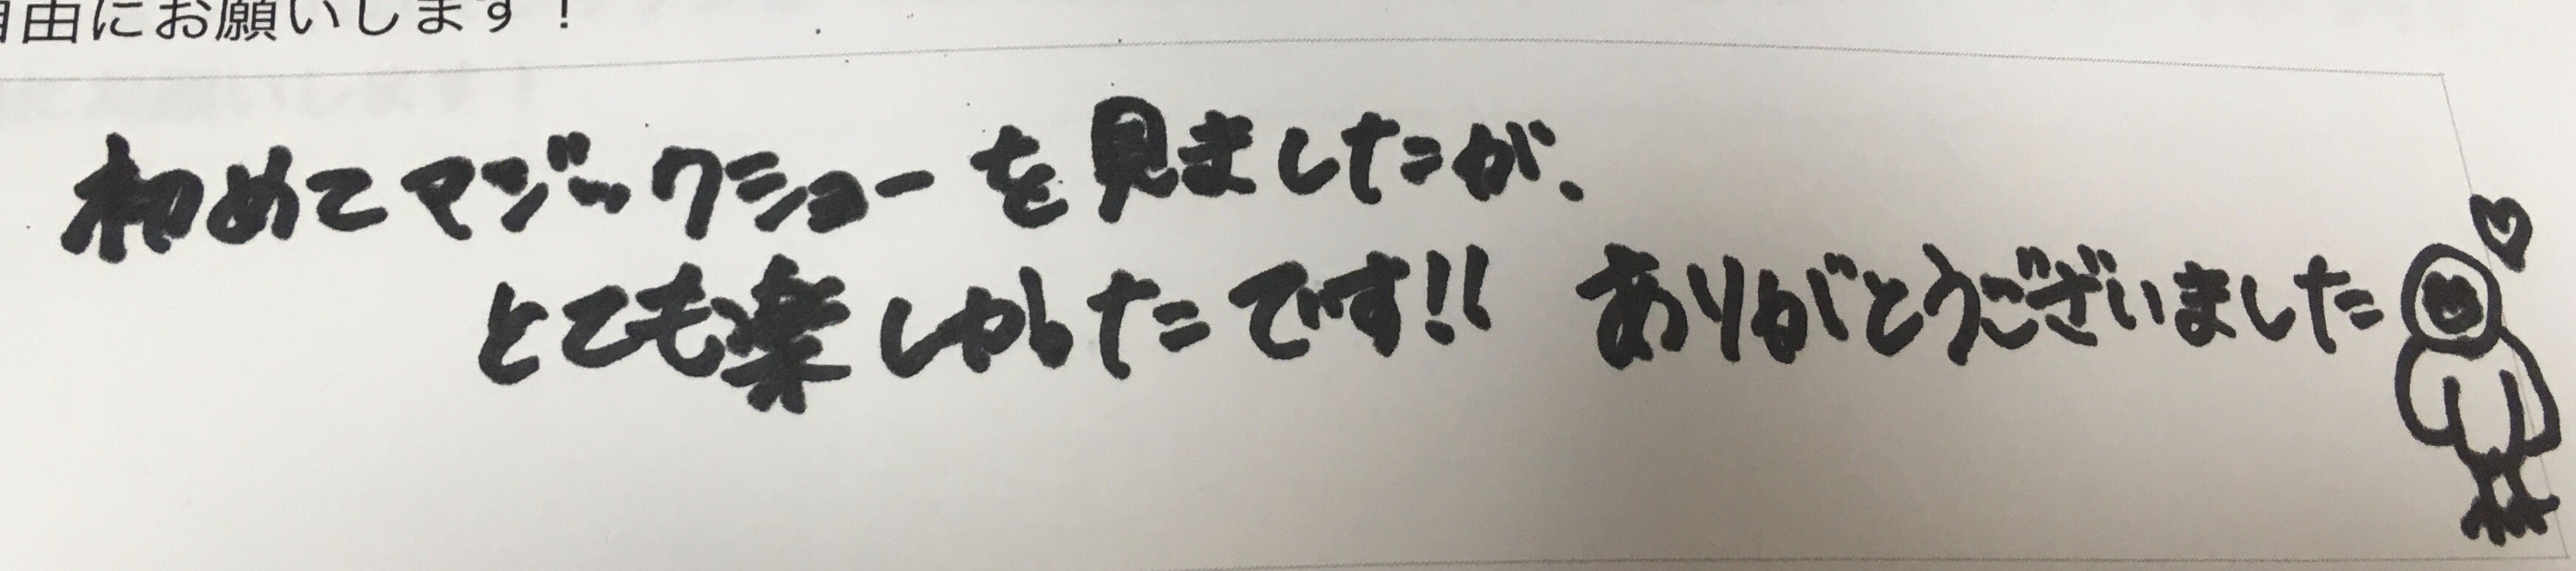 自由にお願いします！
初めてマジックショーを見ましたが、
とても楽しかったです!! ありがとうございました